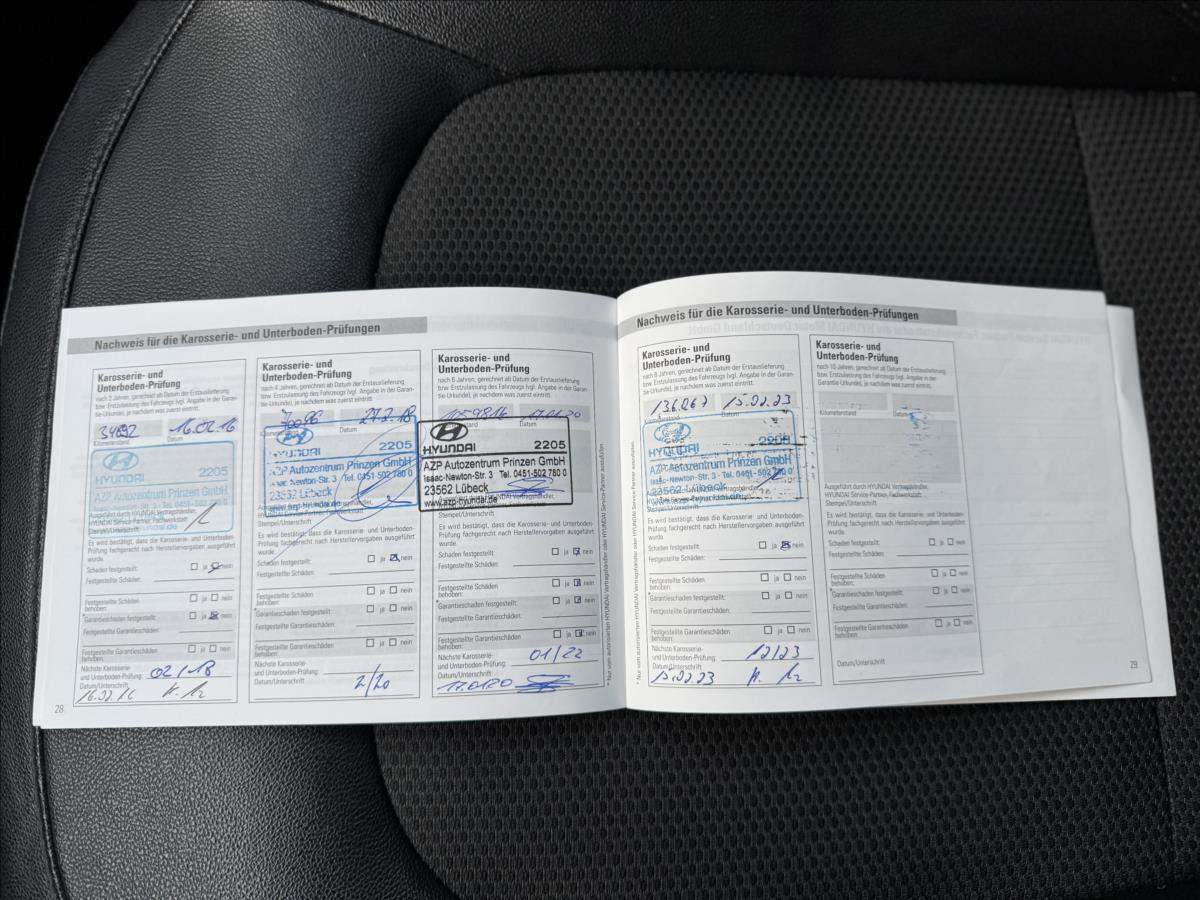 Nachweis für die Karosserie- und Unterboden-Prüfungen
Karosserie- und
Unterboden-Prüfung
nach 2 Jahren, gerechnet ab Datum der Erstauslieferung
bzw. Erstzulassung des Fahrzeugs (vgl. Angabe in der Garan-
tie-Urkunde), je nachdem was zuerst eintritt.
34692 16.02.16
Kilometerstand Datum
HYUNDAI 2205
AZP Autozentrum Prinzen GmbH
Ausgeführt durch HYUNDAI Vertragshändler,
HYUNDAI Service-Partner, Fachwerkstatt:
Stempel/Unterschrift
Es wird bestätigt, dass die Karosserie- und Unterboden-
Prüfung fachgerecht nach Herstellervorgaben ausgeführt
wurde.
Schaden festgestellt: ja nein
Festgestellte Schäden:
Festgestellte Schäden ja nein
behoben:
Garantieschaden festgestellt: ja nein
Festgestellte Garantieschäden:
Festgestellte Garantieschäden ja nein
behoben:
Nächste Karosserie-
und Unterboden-Prüfung: 02/18
Datum/Unterschrift
16.02.16
28
Karosserie- und
Unterboden-Prüfung
nach 4 Jahren, gerechnet ab Datum der Erstauslieferung
bzw. Erstzulassung des Fahrzeugs (vgl. Angabe in der Garan-
tie-Urkunde), je nachdem was zuerst eintritt.
27.2.18
Datum
HYUNDAI 2205
AZP Autozentrum Prinzen GmbH
Isaac-Newton-Str. 3 Tel. 0451-502 780 0
23562 Lübeck
www.azp-hyundai.de
Stempel/Unterschrift
Es wird bestätigt, dass die Karosserie- und Unterboden-
Prüfung fachgerecht nach Herstellervorgaben ausgeführt
wurde.
Schaden festgestellt: ja nein
Festgestellte Schäden:
Festgestellte Schäden ja nein
behoben:
Garantieschaden festgestellt: ja nein
Festgestellte Garantieschäden:
Festgestellte Garantieschäden ja nein
behoben:
Nächste Karosserie-
und Unterboden-Prüfung:
Datum/Unterschrift 2/20
Karosserie- und
Unterboden-Prüfung
nach 6 Jahren, gerechnet ab Datum der Erstauslieferung
bzw. Erstzulassung des Fahrzeugs (vgl. Angabe in der Garan-
tie-Urkunde), je nachdem was zuerst eintritt.
17.01.20
HYUNDAI 2205
AZP Autozentrum Prinzen GmbH
Isaac-Newton-Str. 3 Tel. 0451-502 780 0
23562 Lübeck
www.azp-hyundai.de
Stempel/Unterschrift
Es wird bestätigt, dass die Karosserie- und Unterboden-
Prüfung fachgerecht nach Herstellervorgaben ausgeführt
wurde.
Schaden festgestellt: ja nein
Festgestellte Schäden:
Festgestellte Schäden ja nein
behoben:
Garantieschaden festgestellt: ja nein
Festgestellte Garantieschäden:
Festgestellte Garantieschäden ja nein
behoben:
Nächste Karosserie-
und Unterboden-Prüfung: 01/22
Datum/Unterschrift
17.01.20
* Nur vom autorisierten HYUNDAI Vertragshändler oder HYUNDAI Service-Partner auszuführen
Nachweis für die Karosserie- und Unterboden-Prüfungen
Karosserie- und
Unterboden-Prüfung
nach 8 Jahren, gerechnet ab Datum der Erstauslieferung
bzw. Erstzulassung des Fahrzeugs (vgl. Angabe in der Garan-
tie-Urkunde), je nachdem was zuerst eintritt.
136.067 15.02.23
Kilometerstand Datum
HYUNDAI 2205
AZP Autozentrum Prinzen GmbH
Isaac-Newton-Str. 3 Tel. 0451-502 780 0
23562 Lübeck
Stempel/Unterschrift
Es wird bestätigt, dass die Karosserie- und Unterboden-
Prüfung fachgerecht nach Herstellervorgaben ausgeführt
wurde.
Schaden festgestellt: ja nein
Festgestellte Schäden:
Festgestellte Schäden ja nein
behoben:
Garantieschaden festgestellt: ja nein
Festgestellte Garantieschäden:
Festgestellte Garantieschäden ja nein
behoben:
Nächste Karosserie-
und Unterboden-Prüfung: 12/23
Datum/Unterschrift
15.02.23
* Nur vom autorisierten HYUNDAI Vertragshändler oder HYUNDAI Service-Partner auszuführen
Karosserie- und
Unterboden-Prüfung
nach 10 Jahren, gerechnet ab Datum der Erstauslieferung
bzw. Erstzulassung des Fahrzeugs (vgl. Angabe in der
Garantie-Urkunde), je nachdem was zuerst eintritt.
Kilometerstand Datum
Ausgeführt durch HYUNDAI Vertragshändler,
HYUNDAI Service-Partner, Fachwerkstatt:
Stempel/Unterschrift
Es wird bestätigt, dass die Karosserie- und Unterboden-
Prüfung fachgerecht nach Herstellervorgaben ausgeführt
wurde.
Schaden festgestellt: ja nein
Festgestellte Schäden:
Festgestellte Schäden ja nein
behoben:
Garantieschaden festgestellt: ja nein
Festgestellte Garantieschäden:
Festgestellte Garantieschäden ja nein
behoben:
Datum/Unterschrift
29